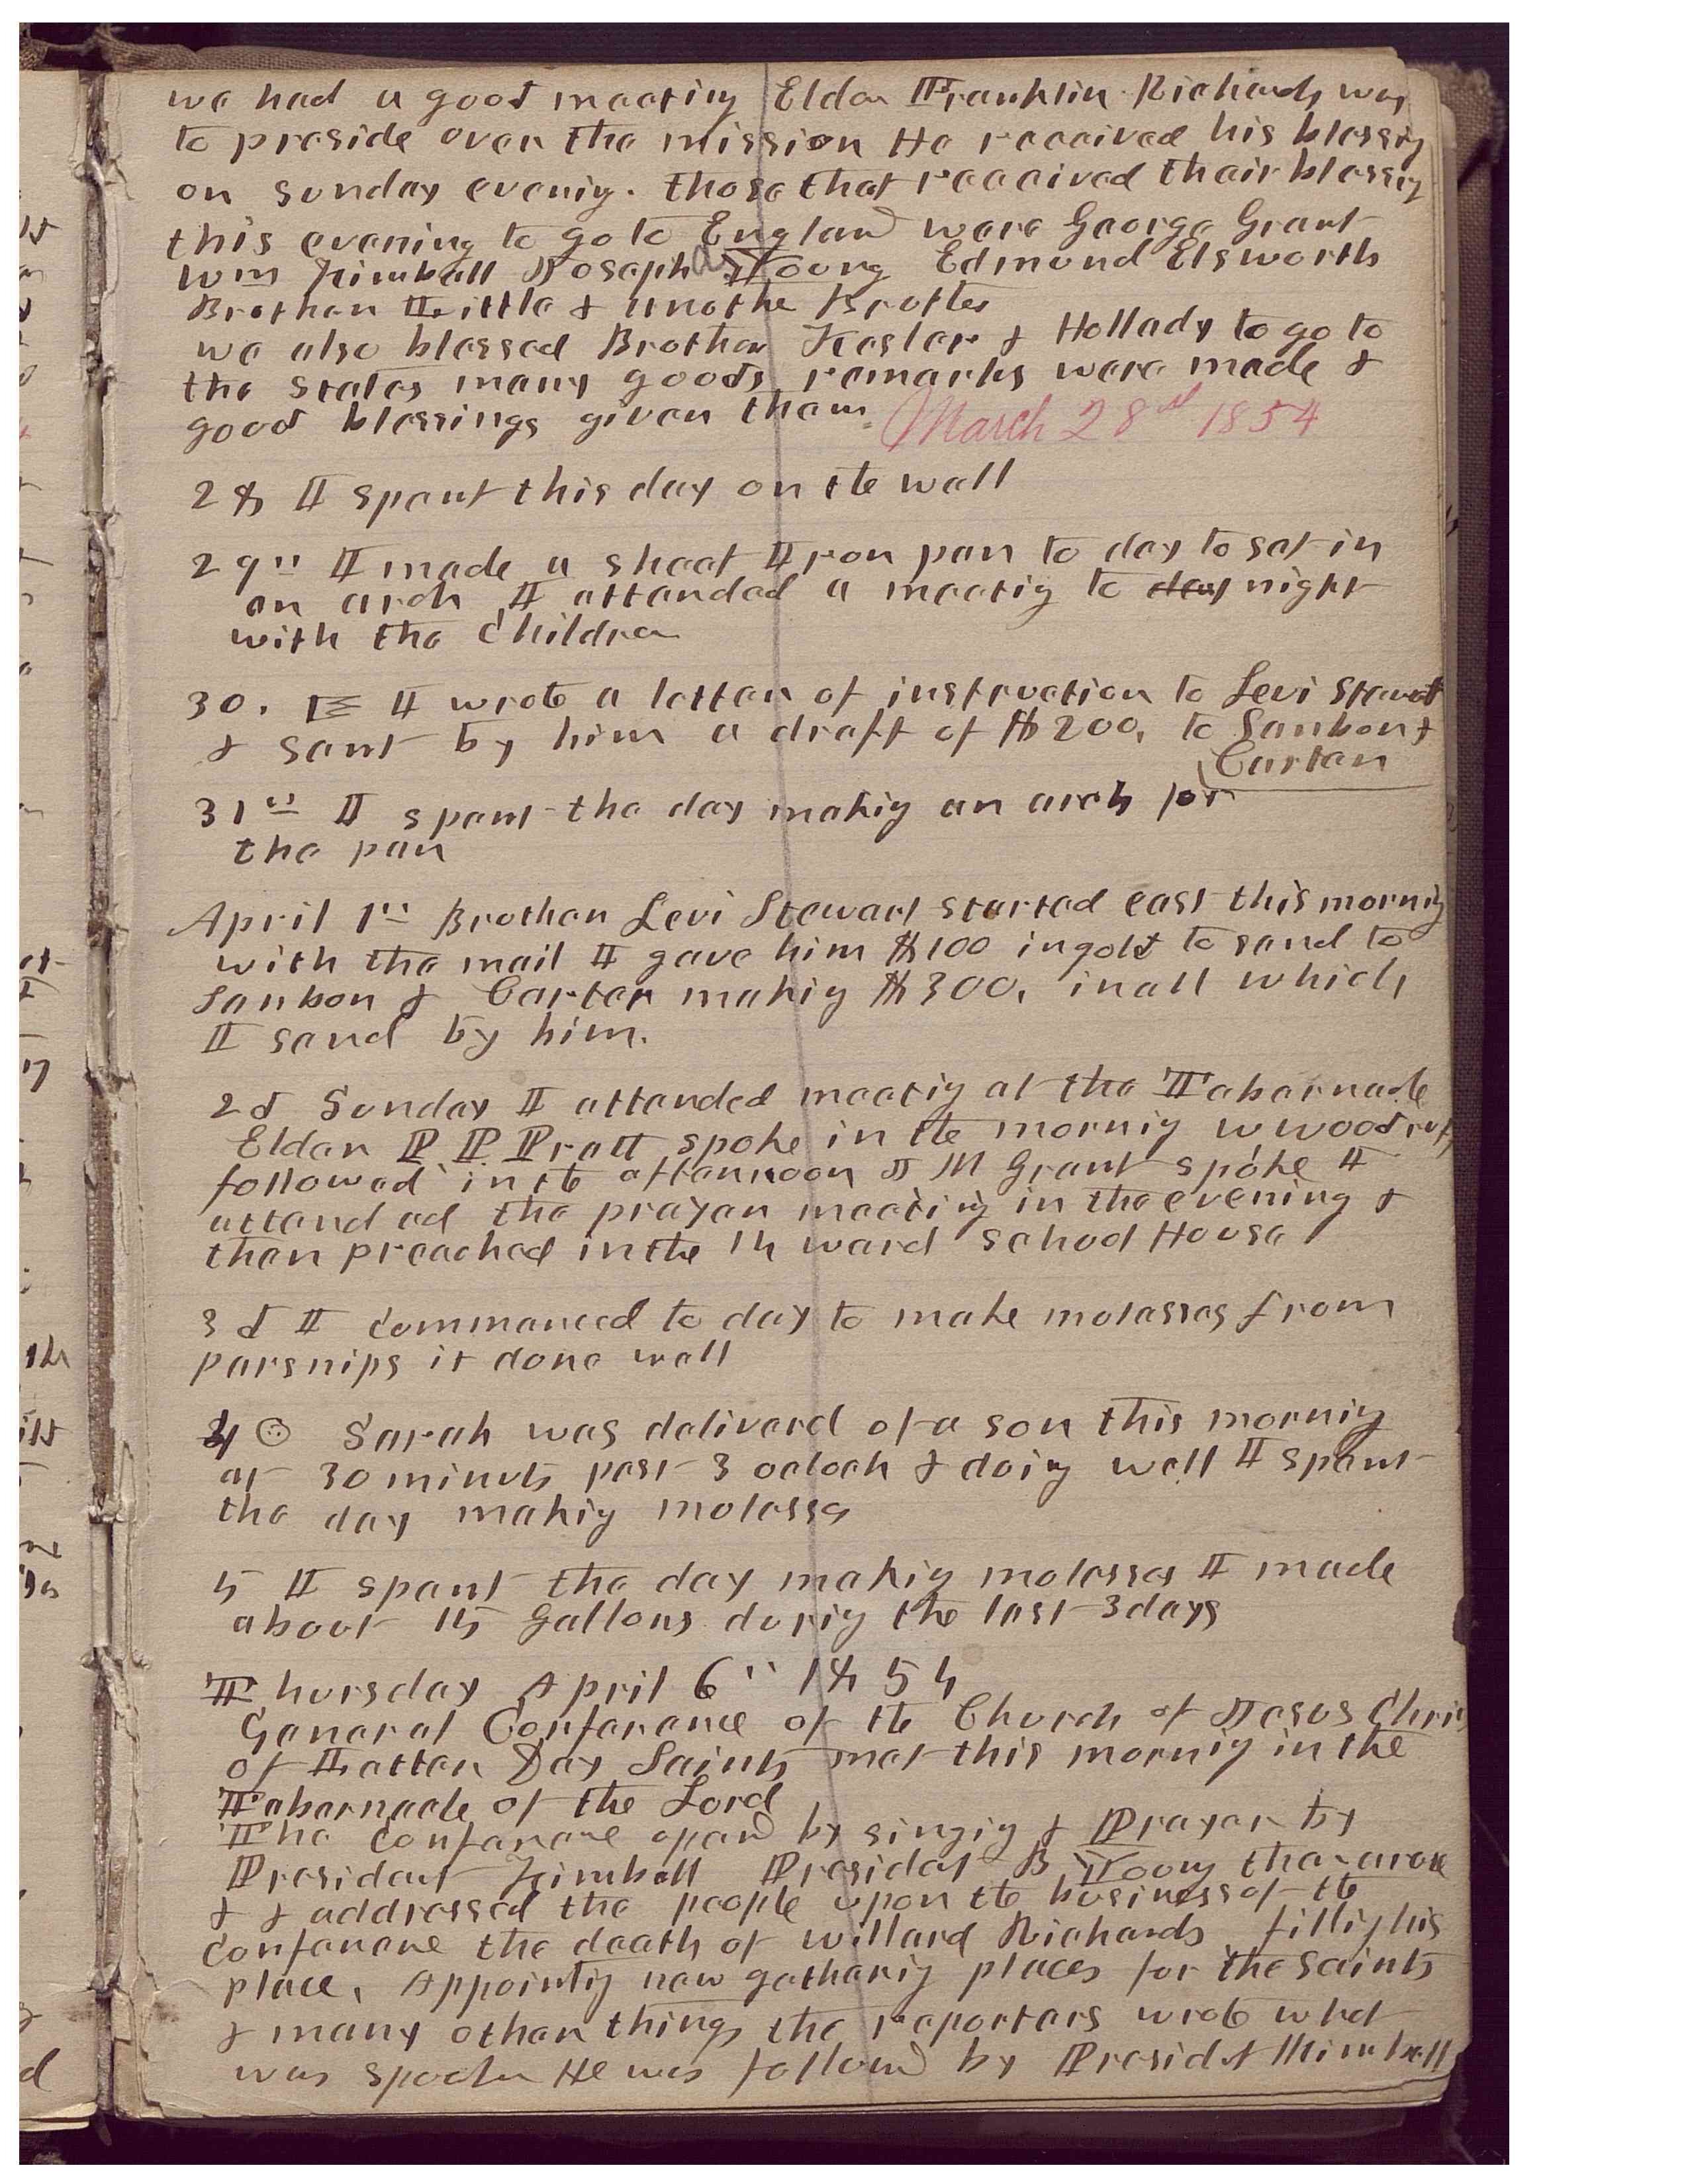 we had a good meeting Elder Franklin Richards was
to preside over the mission He received his blessing
on sunday evenig. those that received their blessig
this evening to go to England were George Grant
Wm Kimball Joseph A Young Edmond Elsworth
Brother Little & Anothe Brother
we also blessed Brother Kesler & Holladay to go to
the States many goods remarks were made &
good blessings given them. March 28th 1854
28 I spent this day on the wall
29" I made a sheet Iron pan to day to set in
an arch I attended a meetig to day night
with the Children
30. I wrote a letter of instruction to Levi Stewart
& sent by him a draft of $200, to Sanbon &
Cartar
31" I spent the day makig an arch for
the pan
April 1" Brother Levi Stewart started east this mornig
with the mail I gave him $100 in gold to send to
Sanbon & Carter makig $300, in all which
I send by him.
2d Sunday I attended meetig at the Tabernacle
Elder P P Pratt spoke in the mornig W Woodruf
followed in the afternoon J M Grant spoke I
attended the prayer meeting in the evening &
then preached in the 14 ward school House
3d I commenced to day to make molasses from
parsnips it done well
4 Sarah was deliverd of a son this mornig
at 30 minuts past 3 oclock & doig well I spent
the day makig molasses
5 I spent the day makig molasses I made
about 15 Gallons durig the last 3 days
Thursday April 6" 1854
General Conferance of the Church of Jesus Chris
of Latter Day Saints met this mornig in the
Tabernacle of the Lord
The Conferance opend by singig & Prayer by
President Kimball Presidet B Young the arose
& & addressed the people upon the business of the
conferance the death of Willard Richards filling his
place, Appointig new gatherig places for the Saints
& many other things the reporters wrote what
was spoken He was followd by Presidet Kimball